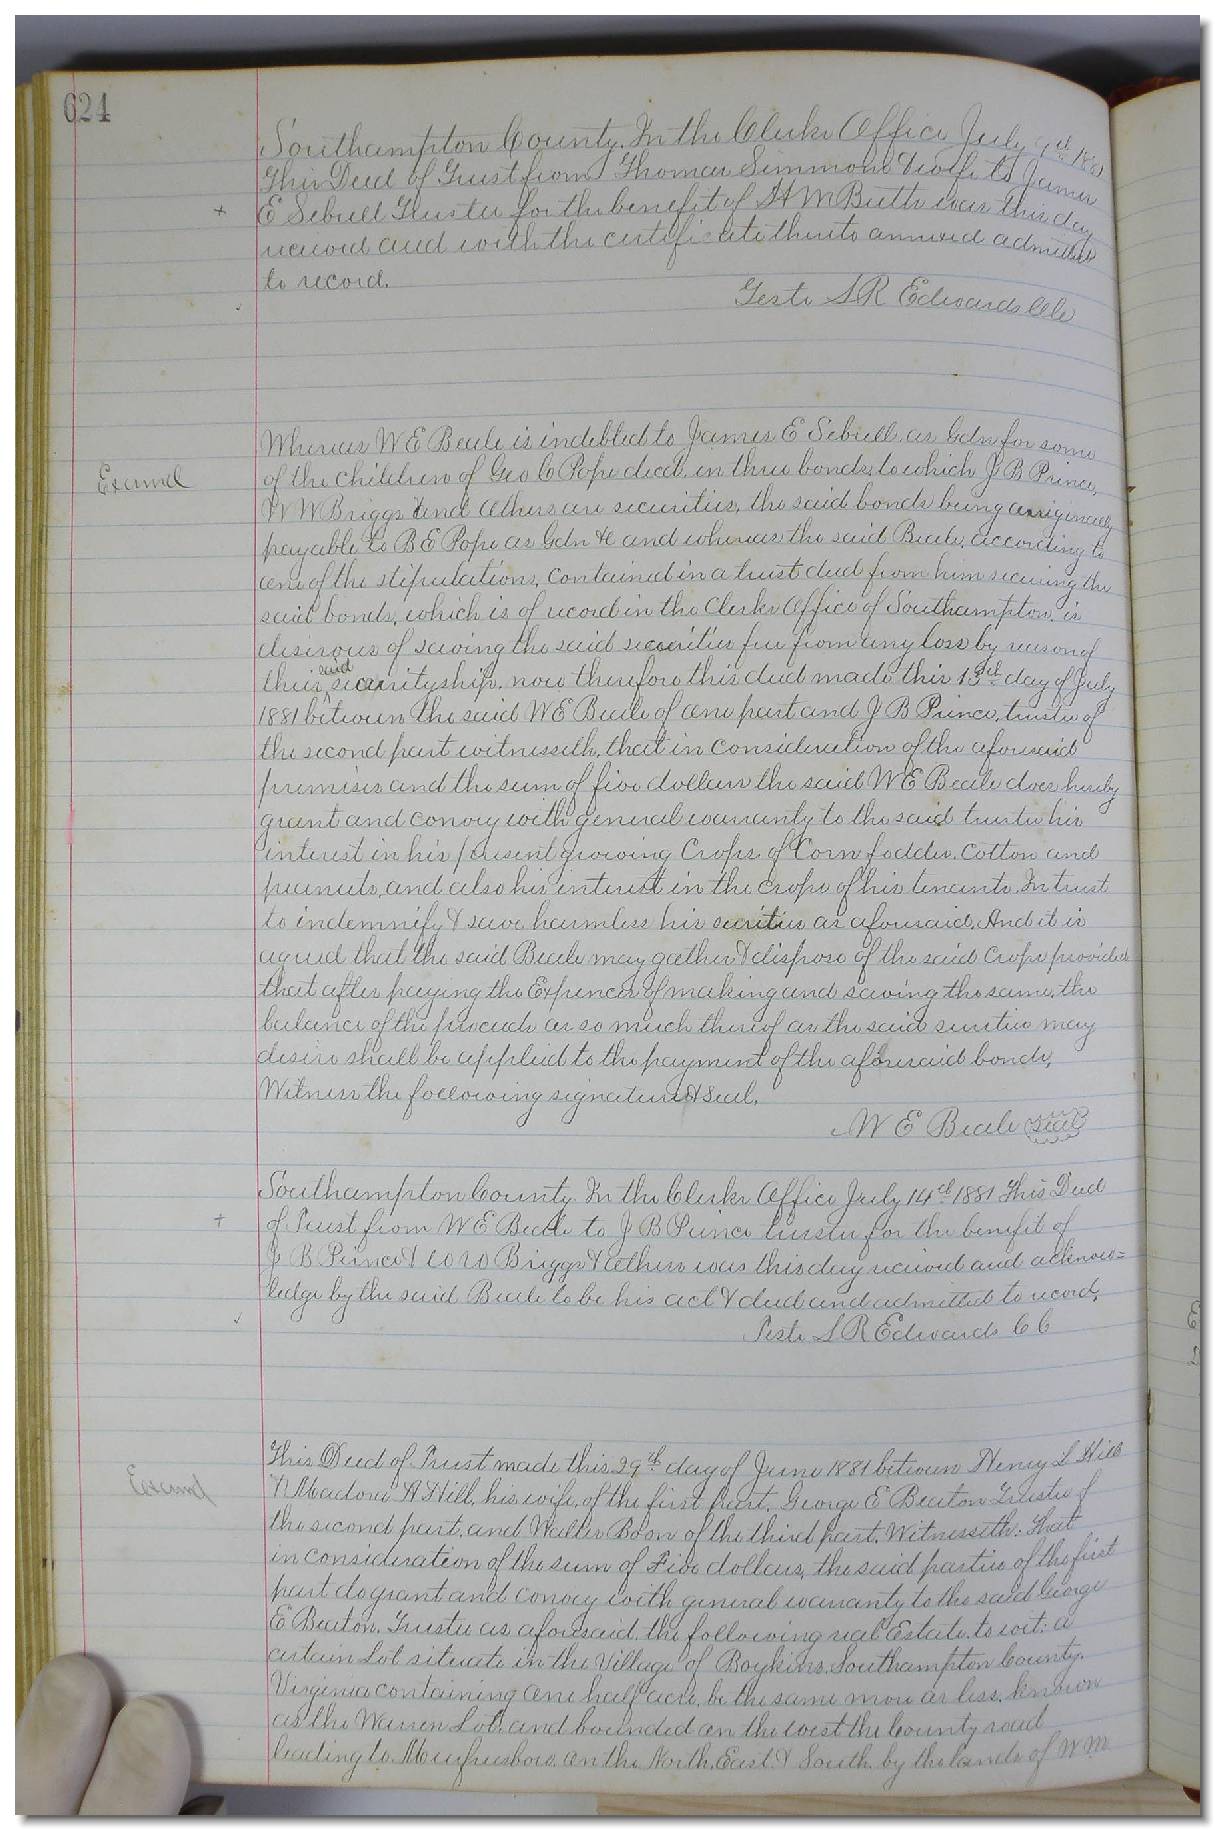 624
Southampton County. In the Clerks Office July 9th 1881
This Deed of Trust from Thomas Simmons & wife to James
+ E Sebrell Trustee for the benefit of H M Butts was this day
received and with the certificate thereto annexed admitted
to record.
Teste S R Edwards Clk
Whereas W E Beale is indebted to James E Sebrell, as Gdn for some
Examd of the children of Geo C Pope decd. in three bonds, to which J B Prince,
W W Briggs and others are securities, the said bonds being
payable to B E Pope as Gdn &c and whereas the said Beale, according to
one of the stipulations, contained in a trust deed from him securing the
said bonds, which is of record in the Clerks Office of Southampton, is
desirous of saving the said securities free from any loss by reason of
their said securityship. now therefore this deed made this 13th day of July
1881 between the said W E Beale of one part and J B Prince, trustee of
the second part witnesseth, that in consideration of the aforesaid
premises and the sum of five dollars the said W E Beale does hereby
grant and convey with general warranty to the said trustee his
interest in his present growing Crops of Corn fodder, Cotton and
peanuts, and also his interest in the crops of his tenants. In trust
to indemnify & save harmless his as aforesaid. And it is
agreed that the said Beale may gather & dispose of the said Crops provided
that after paying the Expences of making and saving the same, the
balance of the proceeds or so much thereof as the said sureties may
desire shall be applied to the payment of the aforesaid bonds,
Witness the following signature & seal.
W E Beale seal
Southampton County. In the Clerks Office July 14th 1881 This Deed
+ of Trust from W E Beale to J B Prince trustee for the benefit of
J B Prince & W W Briggs & others was this day received and acknow=
ledge by the said Beale to be his act & deed and admitted to record,
Teste S R Edwards C C
This Deed of Trust made this 29th day of June 1881 between Henry L Hill
Examd & Madora A Hill, his wife, of the first part, George E Beaton Trustee of
the second part, and Walter Boon of the third part, Witnesseth: That
in consideration of the sum of Five dollars, the said parties of the first
part do grant and convey with general warranty to the said George
E Beaton, Trustee as aforesaid, the following real Estate, to wit: a
certain Lot situate in the Village of Boykins, Southampton County,
Virginia containing one half acre, be the same more or less, known
as the Warren Lot, and bounded on the west the County road
leading to Murfreesboro, on the North, East & South by the lands of W M